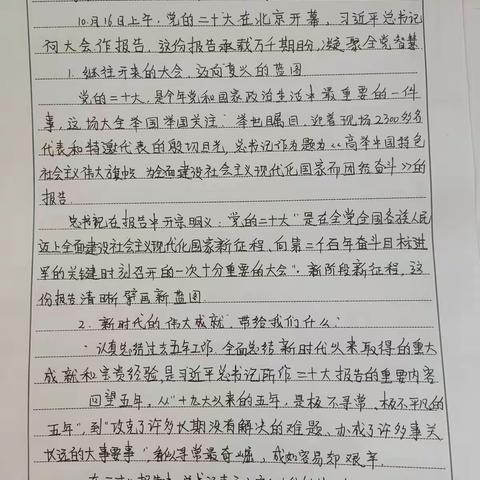 10月16日上午,党的二十大在北京开幕,习近平总书记
向大会作报告,这份报告承载万千期盼,凝聚全党智慧
1. 继往开来的大会,迈向复兴的蓝图
党的二十大,是今年党和国家政治生活中最重要的一件
事,这场大会举国关注,举世瞩目,迎着现场2300多名
代表和特邀代表的殷切目光,总书记作题为《高举中国特色
社会主义伟大旗帜 为全面建设社会主义现代化国家而团结奋斗》的
报告.
总书记在报告中开宗明义:党的二十大"是在全党全国各族人民
迈上全面建设社会主义现代化国家新征程,向第二个百年奋斗目标进
军的关键时刻召开的一次十分重要的大会".新阶段新征程,这
份报告清晰擘画新蓝图.
2. 新时代的伟大成就,带给我们什么?
认真总结过去五年工作,全面总结新时代以来取得的重大
成就和宝贵经验,是习近平总书记所作二十大报告的重要内容
回望五年,从"十九大以来的五年,是极不寻常、极不平凡的
五年",到"攻克了许多长期没有解决的难题、办成了许多事关
长远的大事要事"看似寻常最奇崛,成如容易却艰辛.